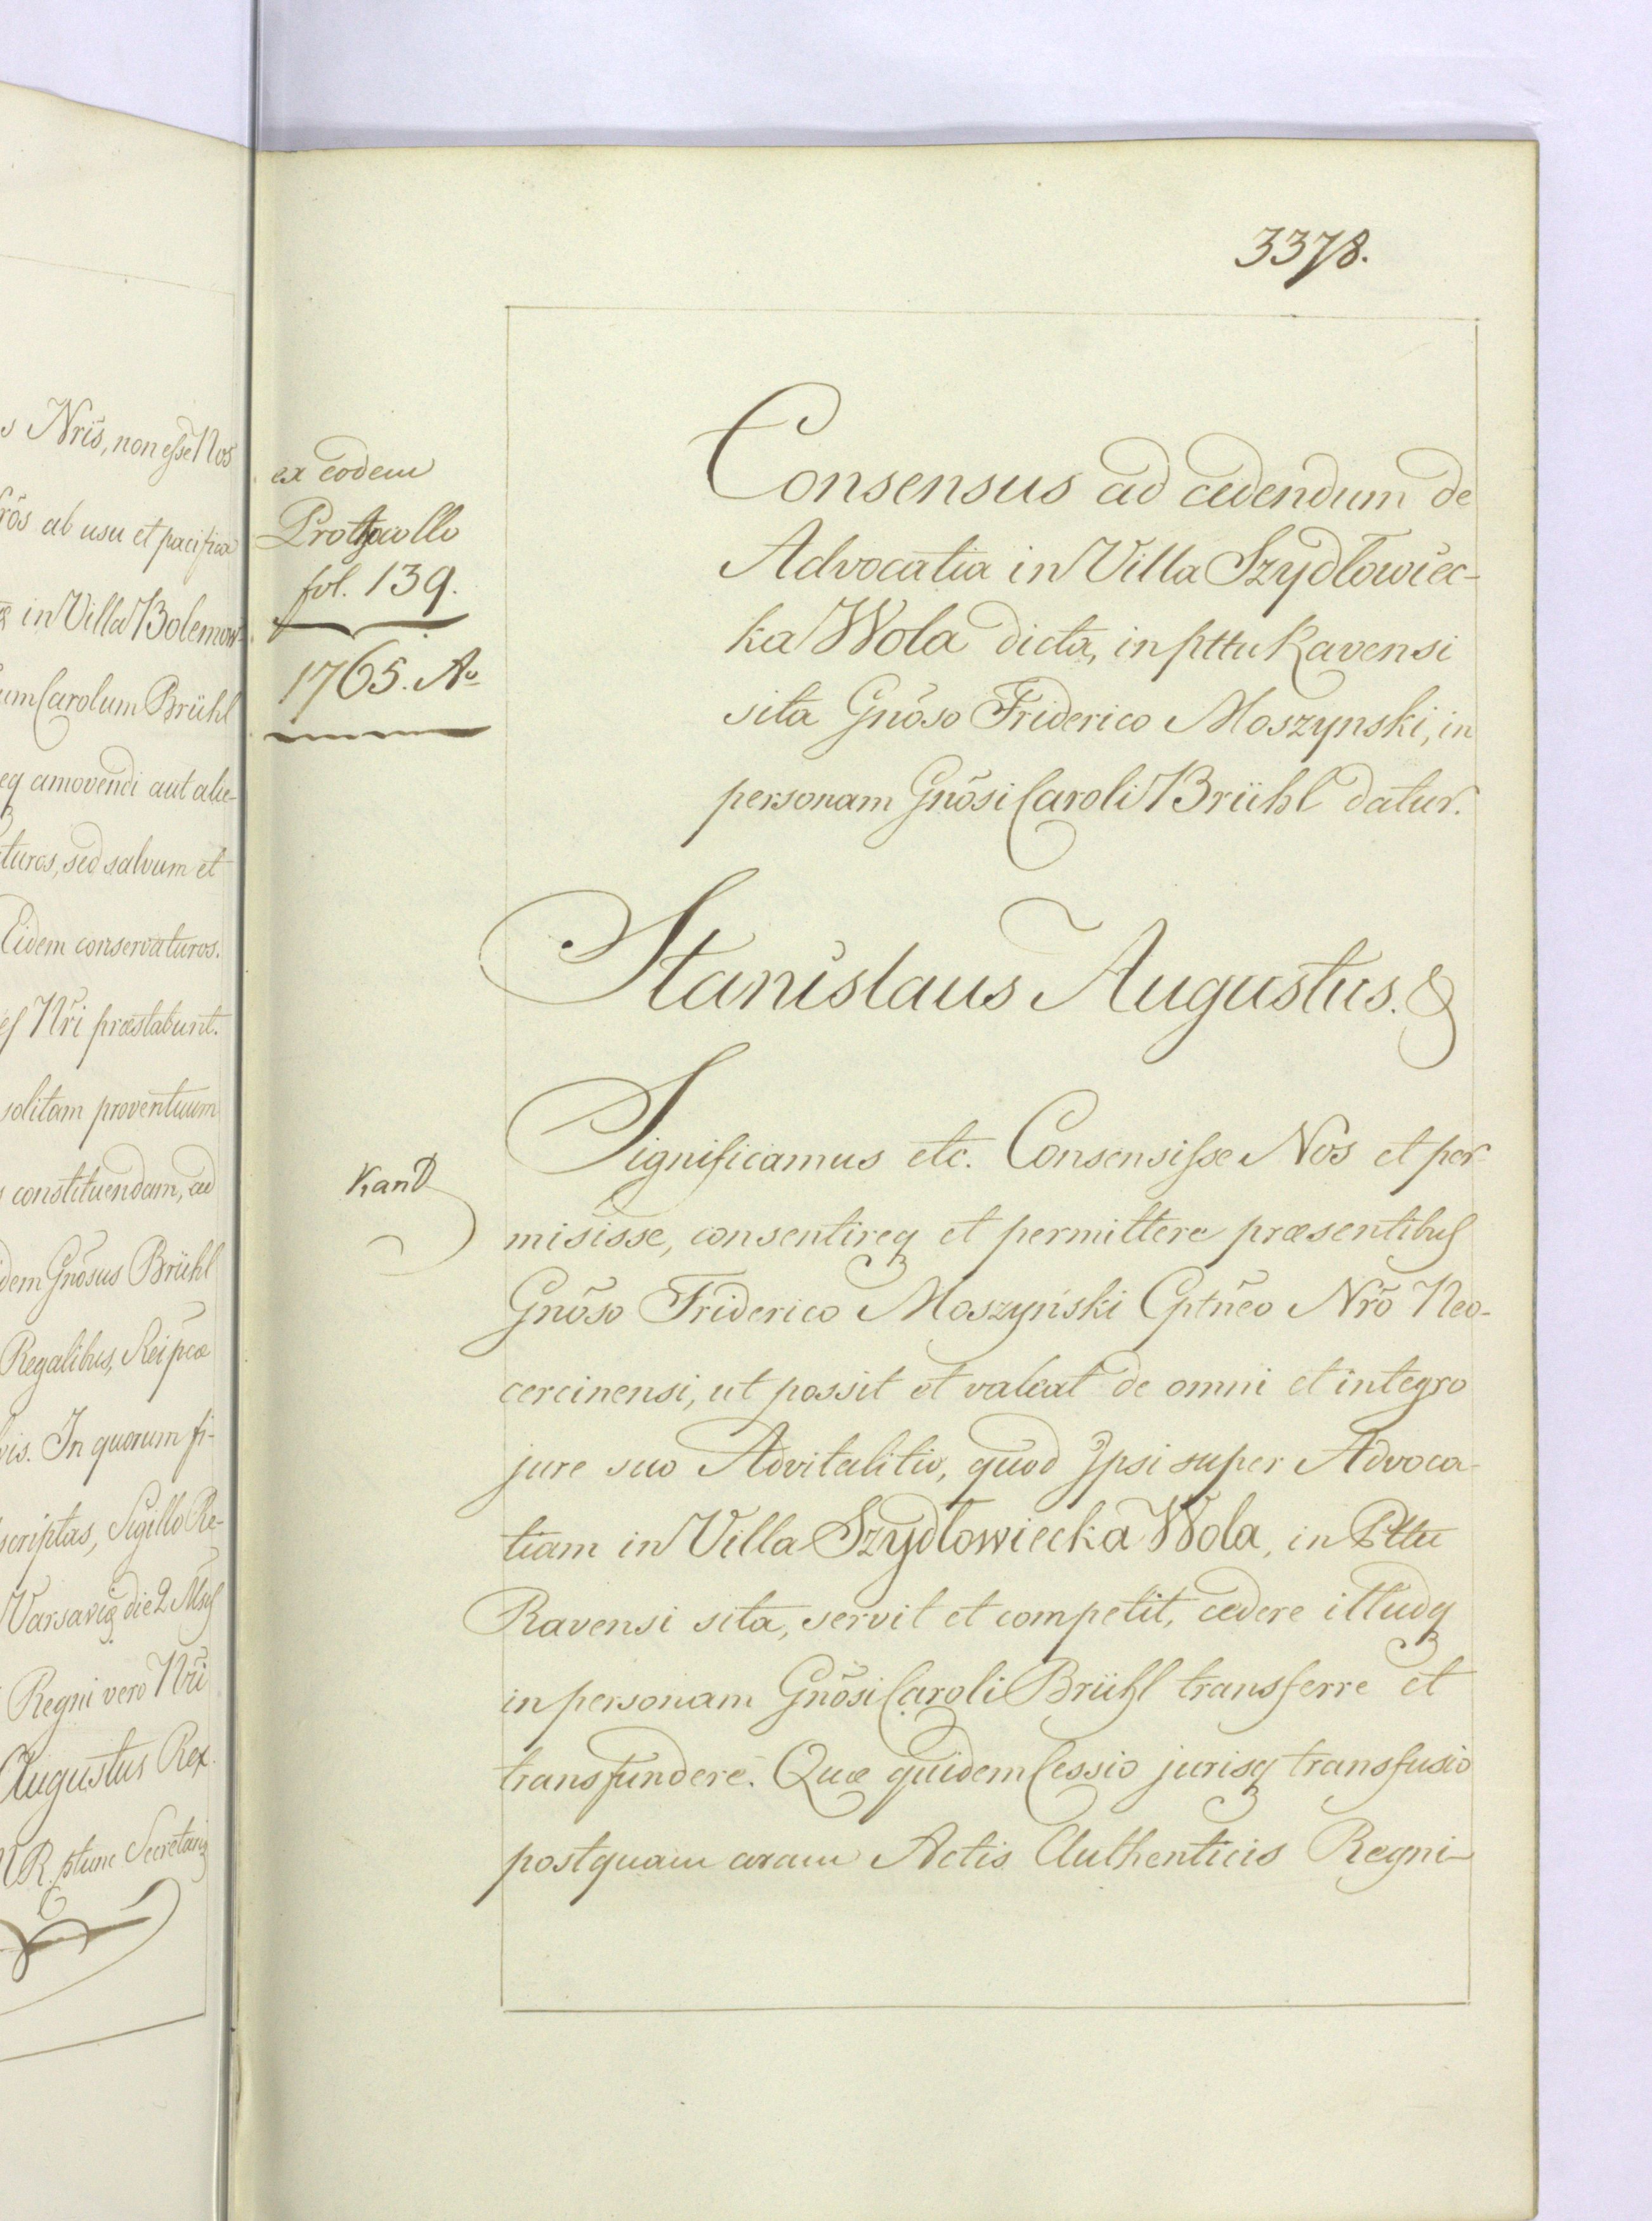 s Nrīs, non esse Nos
ab usu et pacifica
in Villa Bolemow-
Carolum Brühl
amovendi aut alie-
turos, sed salvum et
Eidem conservaturos.
Nri præstabunt.
solitam proventuum
constituendam, ad
Gnõsus Brühl
Regalibus, Reipcæ
In quorum fi-
scriptas, Sigillo Re-
Varsaviæ die 2 Msis
Regni vero Nri
Augustus Rex.
ex eodem
Protocollo
fol. 139.
1765. Ao
Kand
3378.
Consensus ad cedendum de
Advocatia in Villa Szydłowiec-
ka Wola dicta, in pttu Ravensi
sita Gnõso Friderico Moszynski, in
personam Gnõsi Caroli Brühl datur.
Stanislaus Augustus. &
Significamus etc. Consensisse Nos et per-
misisse, consentireq et permittere præsentibus
Gnõso Friderico Moszyński Cptnẽo Nrõ Neo-
cercinensi, ut possit et valeat de omni et integro
jure suo Advitalitio, quod Ipsi super Advoca-
tiam in Villa Szydłowiecka Wola, in Pttu
Ravensi sita, servit et competit, cedere illudq
in personam Gnõsi Caroli Brühl transferre et
transfundere. Quæ quidem Cessio jurisq transfusio
postquam coram Actis Authenticis Regni